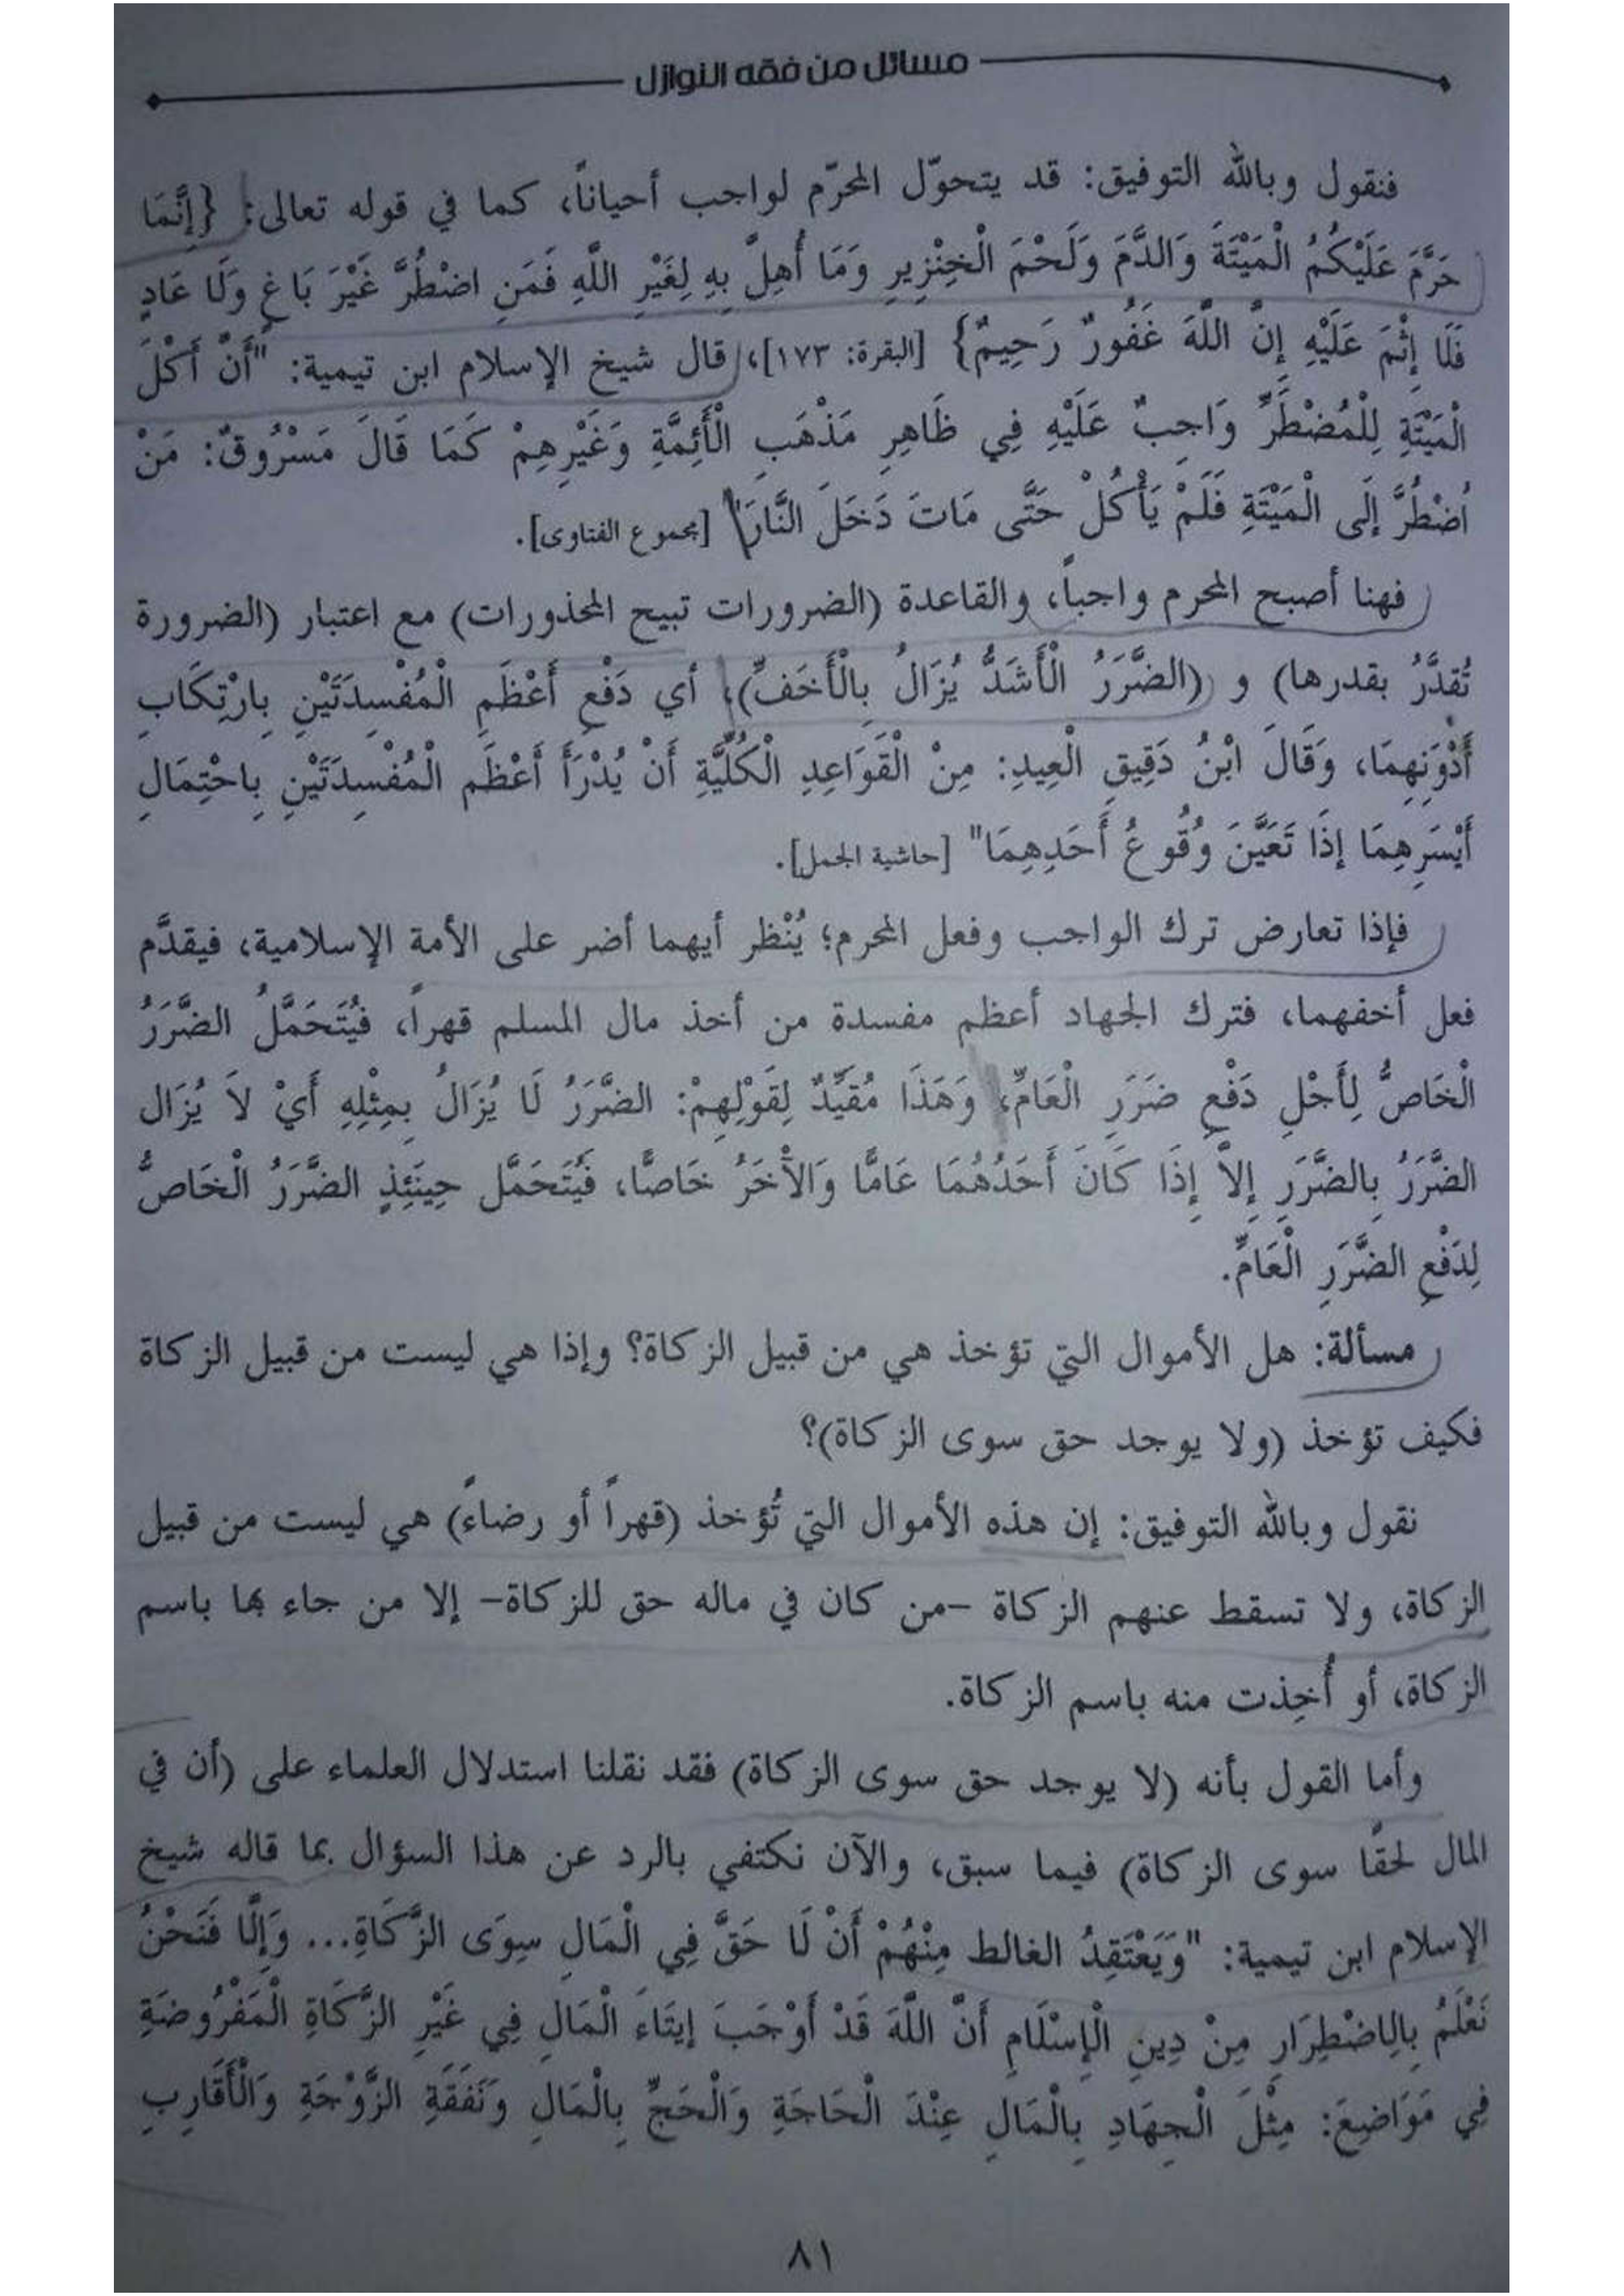 مسائل من فقه النوازل
فنقول وبالله التوفيق: قد يتحوّل المحرّم لواجب أحياناً، كما في قوله تعالى: {إِنَّمَا
حَرَّمَ عَلَيْكُمُ الْمَيْتَةَ وَالدَّمَ وَلَحْمَ الْخِنْزِيرِ وَمَا أُهِلَّ بِهِ لِغَيْرِ اللَّهِ فَمَنِ اضْطُرَّ غَيْرَ بَاغٍ وَلَا عَادٍ
فَلَا إِثْمَ عَلَيْهِ إِنَّ اللَّهَ غَفُورٌ رَحِيمٌ} [البقرة: ١٧٣]، قال شيخ الإسلام ابن تيمية: "أَنَّ أَكْلَ
الْمَيْتَةِ لِلْمُضْطَرِّ وَاجِبٌ عَلَيْهِ فِي ظَاهِرِ مَذْهَبِ الْأَئِمَّةِ وَغَيْرِهِمْ كَمَا قَالَ مَسْرُوقٌ: مَنْ
اُضْطُرَّ إلَى الْمَيْتَةِ فَلَمْ يَأْكُلْ حَتَّى مَاتَ دَخَلَ النَّارَ" [مجموع الفتاوى].
فهنا أصبح المحرم واجباً، والقاعدة (الضرورات تبيح المحذورات) مع اعتبار (الضرورة
تُقدَّرُ بقدرها) و (الضَّرَرُ الْأَشَدُّ يُزَالُ بِالْأَخَفِّ)، أي دَفْعِ أَعْظَمِ الْمُفْسِدَتَيْنِ بِارْتِكَابِ
أَدْوَنِهِمَا، وَقَالَ ابْنُ دَقِيقِ الْعِيدِ: مِنْ الْقَوَاعِدِ الْكُلِّيَّةِ أَنْ يُدْرَأَ أَعْظَم الْمُفْسِدَتَيْنِ بِاحْتِمَالِ
أَيْسَرِهِمَا إذَا تَعَيَّنَ وُقُوعُ أَحَدِهِمَا" [حاشية الجمل].
فإذا تعارض ترك الواجب وفعل المحرم؛ يُنْظر أيهما أضر على الأمة الإسلامية، فيقدَّم
فعل أخفهما، فترك الجهاد أعظم مفسدة من أخذ مال المسلم قهراً، فيُتَحَمَّلُ الضَّرَرُ
الْخَاصُّ لِأَجْلِ دَفْعِ ضَرَرِ الْعَامِّ، وَهَذَا مُقَيَّدٌ لِقَوْلِهِمْ: الضَّرَرُ لَا يُزَالُ بِمِثْلِهِ أَيْ لاَ يُزَال
الضَّرَرُ بِالضَّرَرِ إِلاَّ إِذَا كَانَ أَحَدُهُمَا عَامًّا وَالآْخَرُ خَاصًّا، فَيُتَحَمَّل حِينَئِذٍ الضَّرَرُ الْخَاصُّ
لِدَفْعِ الضَّرَرِ الْعَامِّ.
مسألة: هل الأموال التي تؤخذ هي من قبيل الزكاة؟ وإذا هي ليست من قبيل الزكاة
فكيف تؤخذ (ولا يوجد حق سوى الزكاة)؟
نقول وبالله التوفيق: إن هذه الأموال التي تُؤخذ (قهراً أو رضاءً) هي ليست من قبيل
الزكاة، ولا تسقط عنهم الزكاة -من كان في ماله حق للزكاة- إلا من جاء بها باسم
الزكاة، أو أُخِذت منه باسم الزكاة.
وأما القول بأنه (لا يوجد حق سوى الزكاة) فقد نقلنا استدلال العلماء على (أن في
المال لحقًا سوى الزكاة) فيما سبق، والآن نكتفي بالرد عن هذا السؤال بما قاله شيخ
الإسلام ابن تيمية: "وَيَعْتَقِدُ الغالط مِنْهُمْ أَنْ لَا حَقَّ فِي الْمَالِ سِوَى الزَّكَاةِ... وَإِلَّا فَنَحْنُ
نَعْلَمُ بِالِاضْطِرَارِ مِنْ دِينِ الْإِسْلَامِ أَنَّ اللَّهَ قَدْ أَوْجَبَ إيتَاءَ الْمَالِ فِي غَيْرِ الزَّكَاةِ الْمَفْرُوضَةِ
فِي مَوَاضِعَ: مِثْلَ الْجِهَادِ بِالْمَالِ عِنْدَ الْحَاجَةِ وَالْحَجِّ بِالْمَالِ وَنَفَقَةِ الزَّوْجَةِ وَالْأَقَارِبِ
٨١